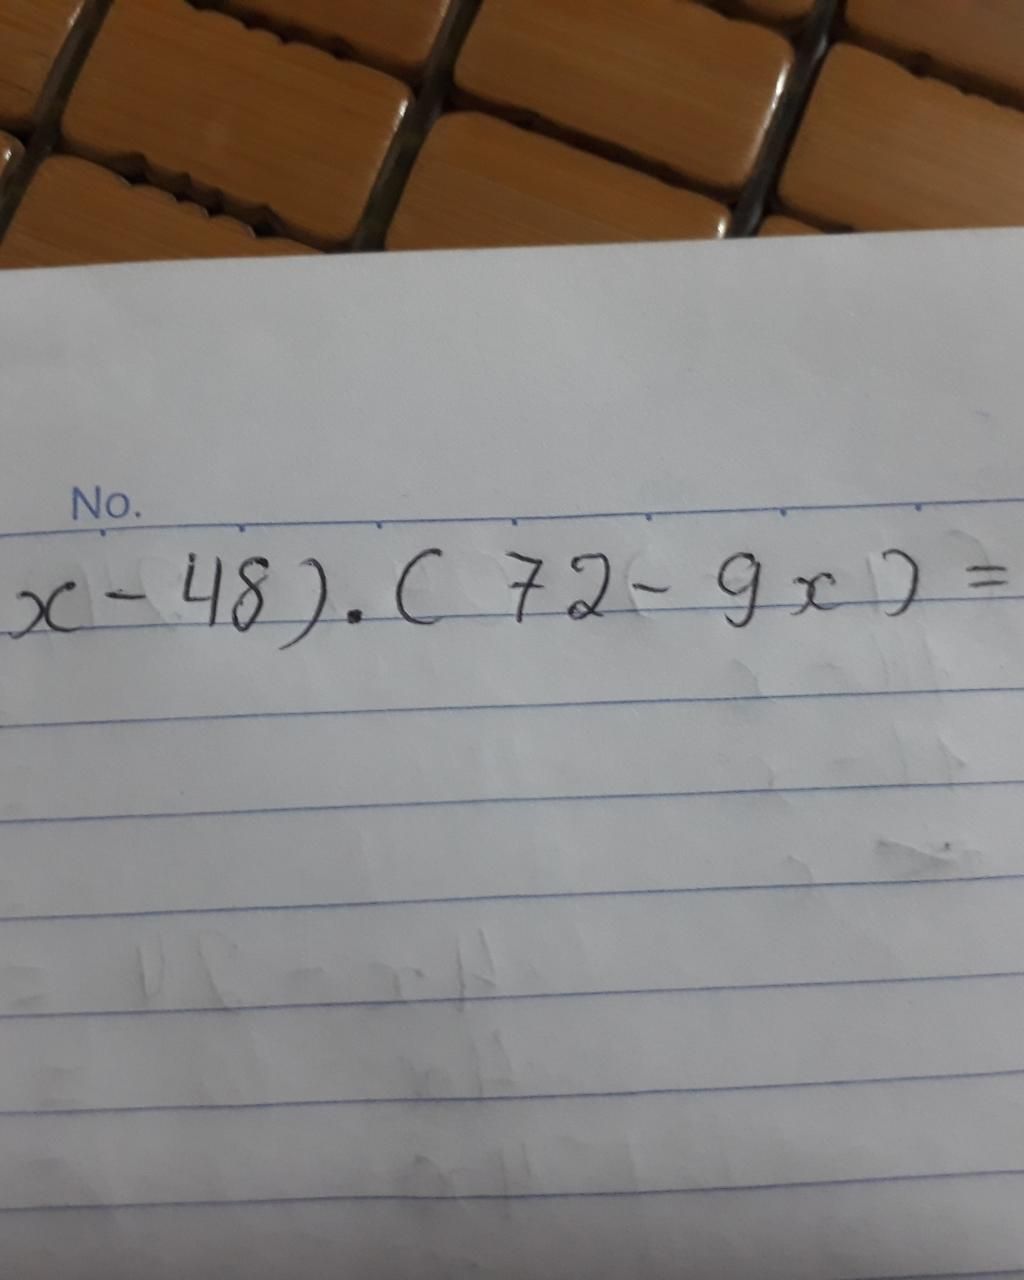 No.
x - 48) . ( 72 - 9x ) =